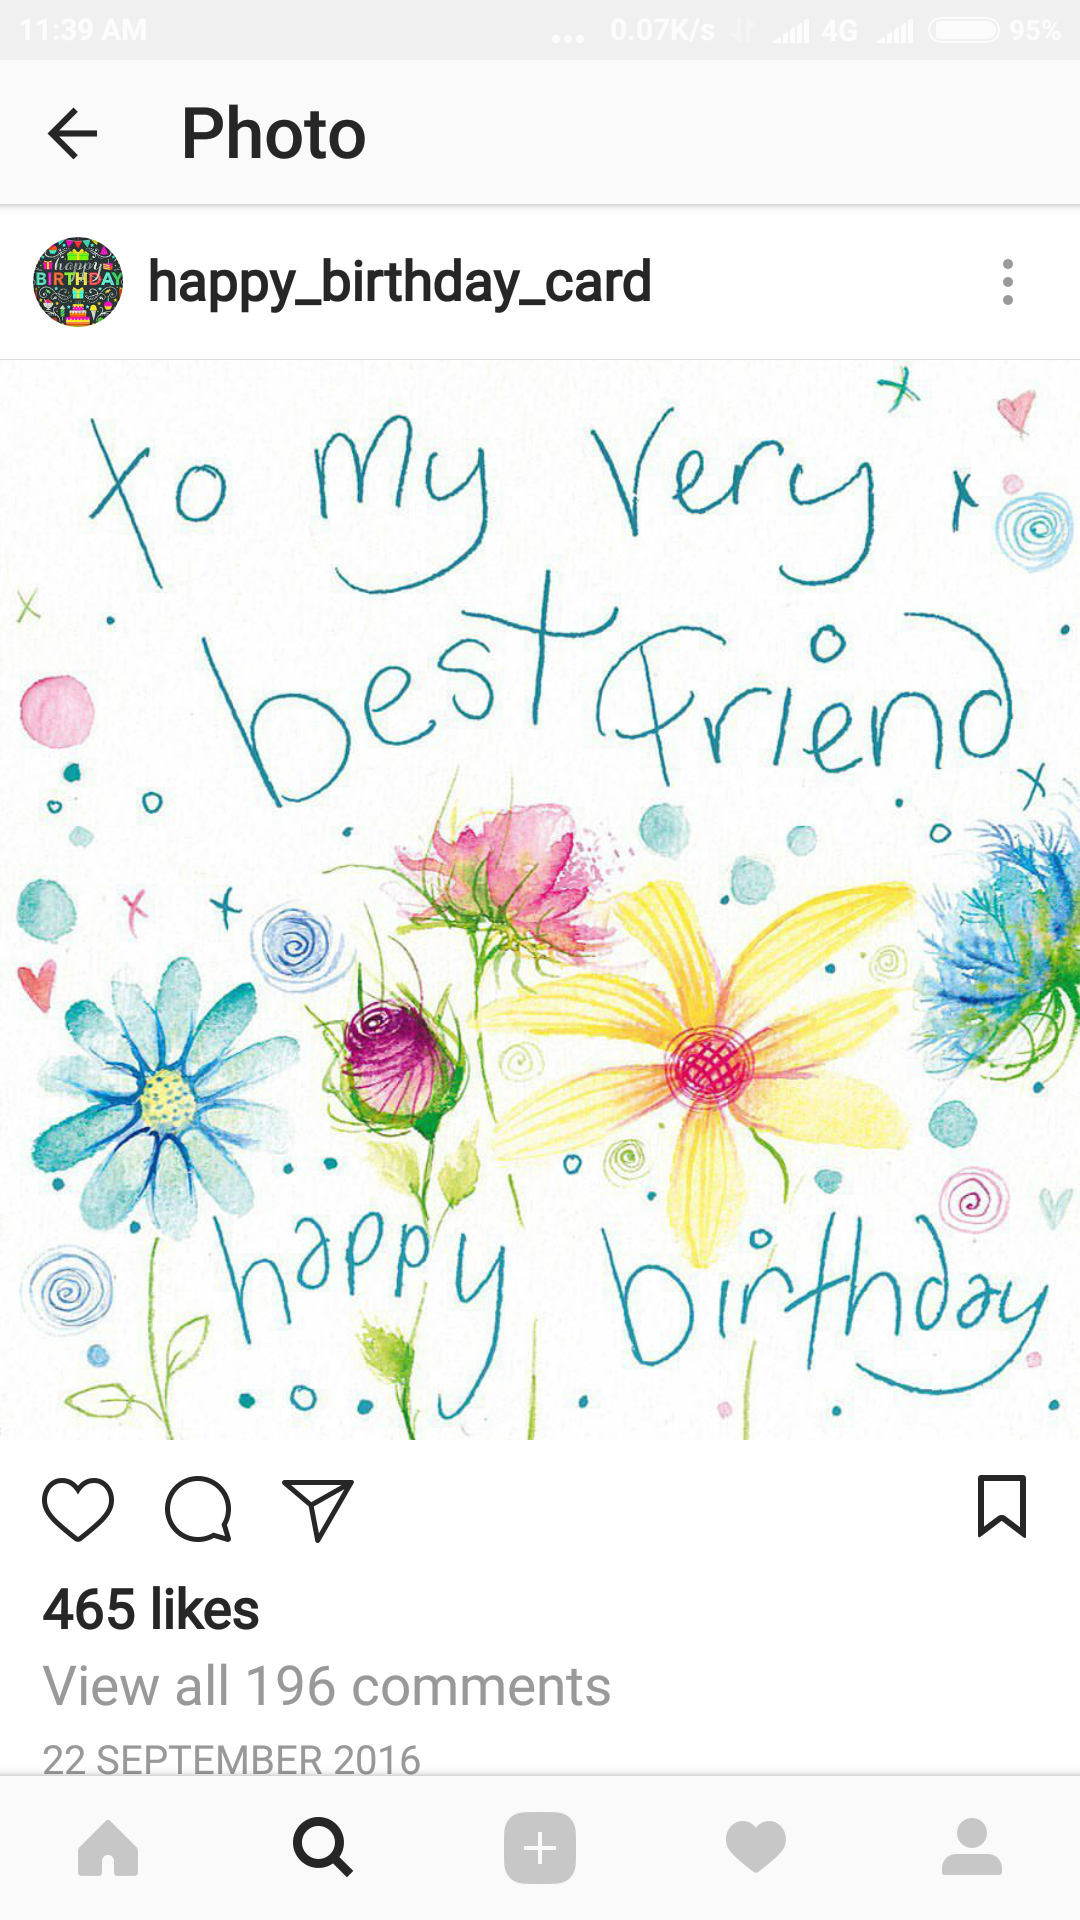 11:39 AM ... 0.07K/s 4G 95%
Photo
happy BIRTHDAY
happy_birthday_card
to my very
best friend
happy birthday
465 likes
View all 196 comments
22 SEPTEMBER 2016